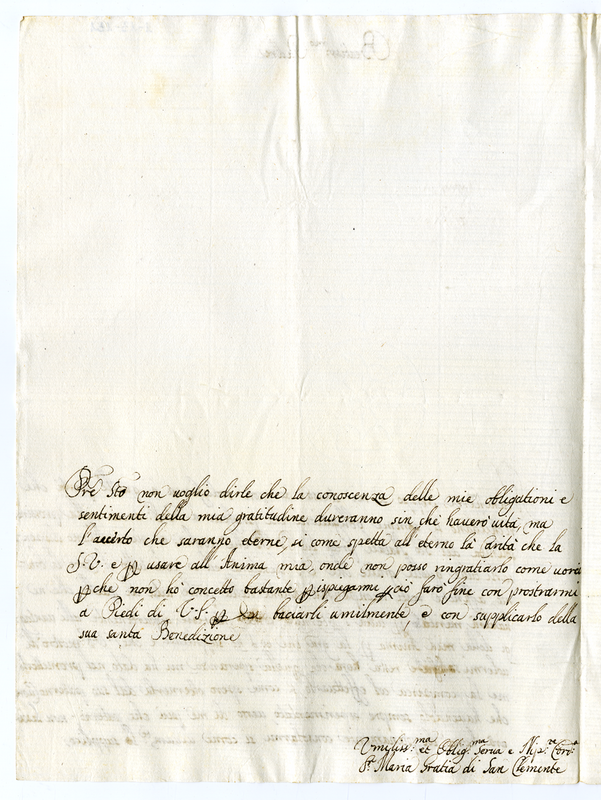 Pre Sto non uoglio dirle che la conoscenza delle mie obligationi e
sentimenti della mia gratitudine dureranno sin che hauerò uita, ma
l'accerto che saranno eterne, si come spetta all'eterno la carità che la
S. V. e p usare all Anima mia, onde non posso ringratiarlo come uorei
pche non hò concetto bastante p ispiegarmi p ciò farò fine con prostrarmi
a Piedi di V. S. p baciarli umilmente, e con supplicarlo della
sua santa Benedizione
Vmiliss:ma et Oblig:ma Serua e
Sr Maria Gratia di San Clemente